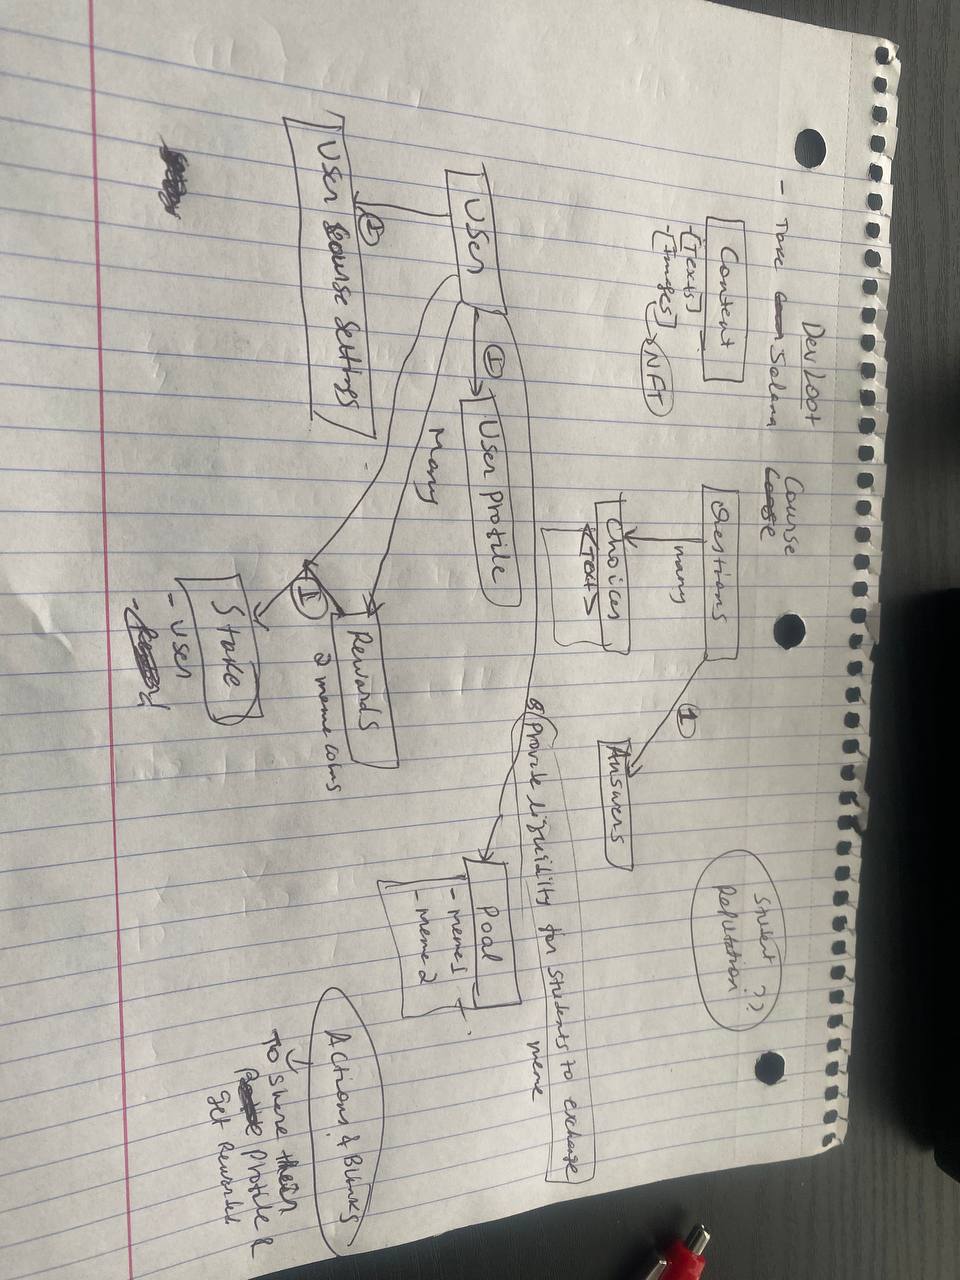 DevLoot
- Take Solana Course
Content
- [Texts]
- [Images] → NFT
Questions
many
Choices
<Text>
1
Answers
Student ??
Reputation
User
1
User Profile
1
User Course Settings
Many
Rewards
2 meme coins
1
Stake
- User
Provide liquidity for students to exchange
meme
Pool
- meme1
- meme2
Actions & Blinks
To share their
Profile &
get rewarded